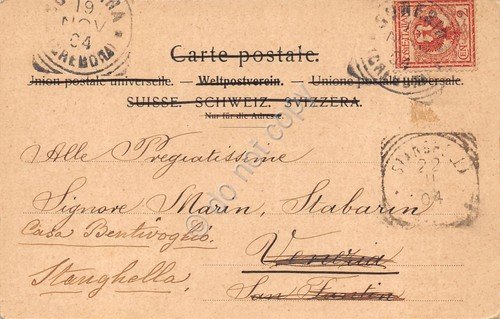 19
NOV
04
(CREMONA)
Carte postale.
Union postale universelle. — Weltpostverein. — Unione postale universale.
SUISSE. SCHWEIZ. SVIZZERA.
Nur für die Adresse.
Alle Pregiatissime
Signore Marin, Stabarin
Casa Bentivoglio.
Venezia
Stanghella.
San Fantin
04
do not copy